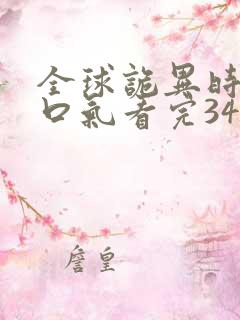 全球詭異時
口氣看完34
詹皇